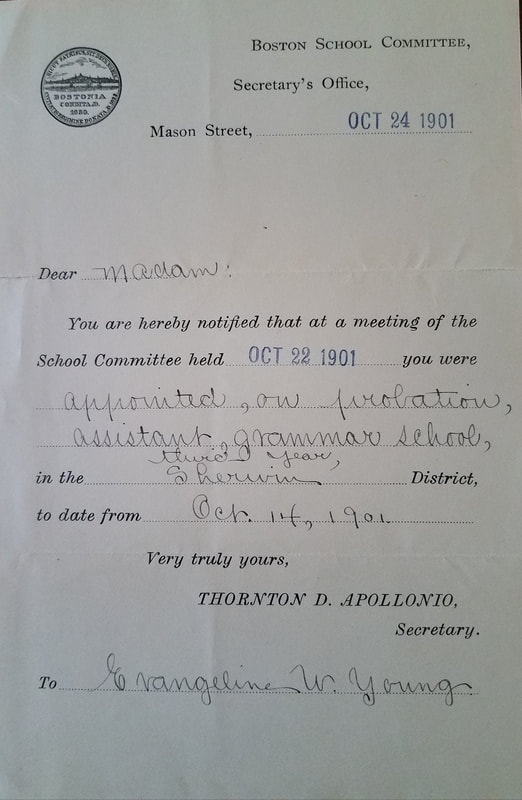 BOSTON SCHOOL COMMITTEE,
Secretary's Office,
Mason Street, OCT 24 1901
BOSTONIA
CONDITA A.D.
1630.
Dear Madam:
You are hereby notified that at a meeting of the
School Committee held OCT 22 1901 you were
appointed, on probation,
assistant, grammar school,
third year,
in the Sherwin District,
to date from Oct. 14, 1901.
Very truly yours,
THORNTON D. APOLLONIO,
Secretary.
To Evangeline W. Young.